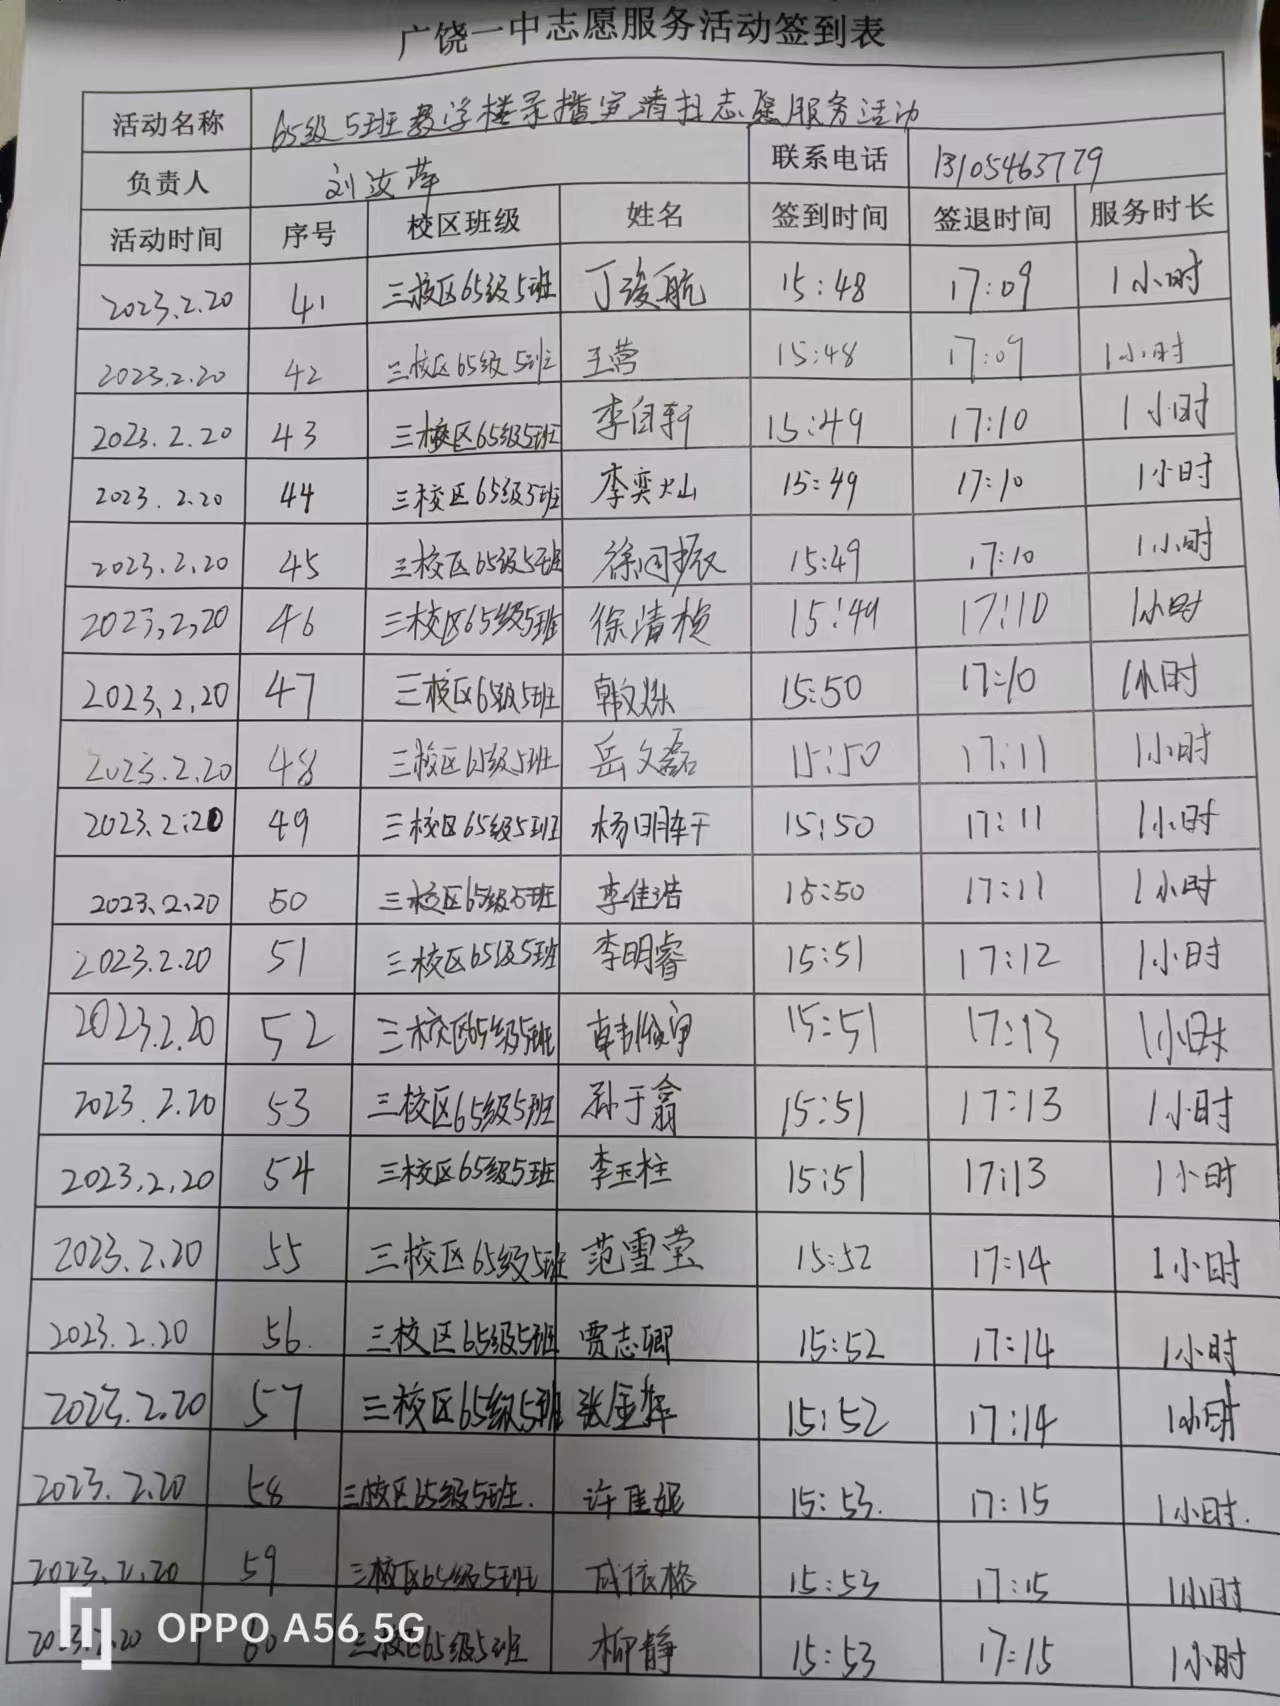 广饶一中志愿服务活动签到表
活动名称 65级5班教学楼录播室清扫志愿服务活动
负责人 刘汝萍 联系电话 13105463779
活动时间 序号 校区班级 姓名 签到时间 签退时间 服务时长
2023.2.20 41 三校区65级5班 丁浚航 15:48 17:09 1小时
2023.2.20 42 三校区65级5班 王营 15:48 17:09 1小时
2023.2.20 43 三校区65级5班 李自轩 15:49 17:10 1小时
2023.2.20 44 三校区65级5班 李奕 15:49 17:10 1小时
2023.2.20 45 三校区65级5班 徐国振 15:49 17:10 1小时
2023.2.20 46 三校区65级5班 徐清桢 15:49 17:10 1小时
2023.2.20 47 三校区65级5班 韩文烁 15:50 17:10 1小时
2023.2.20 48 三校区65级5班 岳文磊 15:50 17:11 1小时
2023.2.20 49 三校区65级5班 杨明轩 15:50 17:11 1小时
2023.2.20 50 三校区65级5班 李佳浩 15:50 17:11 1小时
2023.2.20 51 三校区65级5班 李明睿 15:51 17:12 1小时
2023.2.20 52 三校区65级5班 15:51 17:13 1小时
2023.2.20 53 三校区65级5班 孙于翕 15:51 17:13 1小时
2023.2.20 54 三校区65级5班 李玉柱 15:51 17:13 1小时
2023.2.20 55 三校区65级5班 范雪莹 15:52 17:14 1小时
2023.2.20 56. 三校区65级5班 贾志卿 15:52 17:14 1小时
2023.2.20 57 三校区65级5班 张金辉 15:52 17:14 1小时
2023.2.20 58 三校区65级5班. 许佳妮 15:53. 17:15 1小时.
2023.2.20 59 三校区65级5班 成依格 15:53 17:15 1小时
2023.2.20 60 三校区65级5班 柳静 15:53 17:15 1小时
OPPO A56 5G